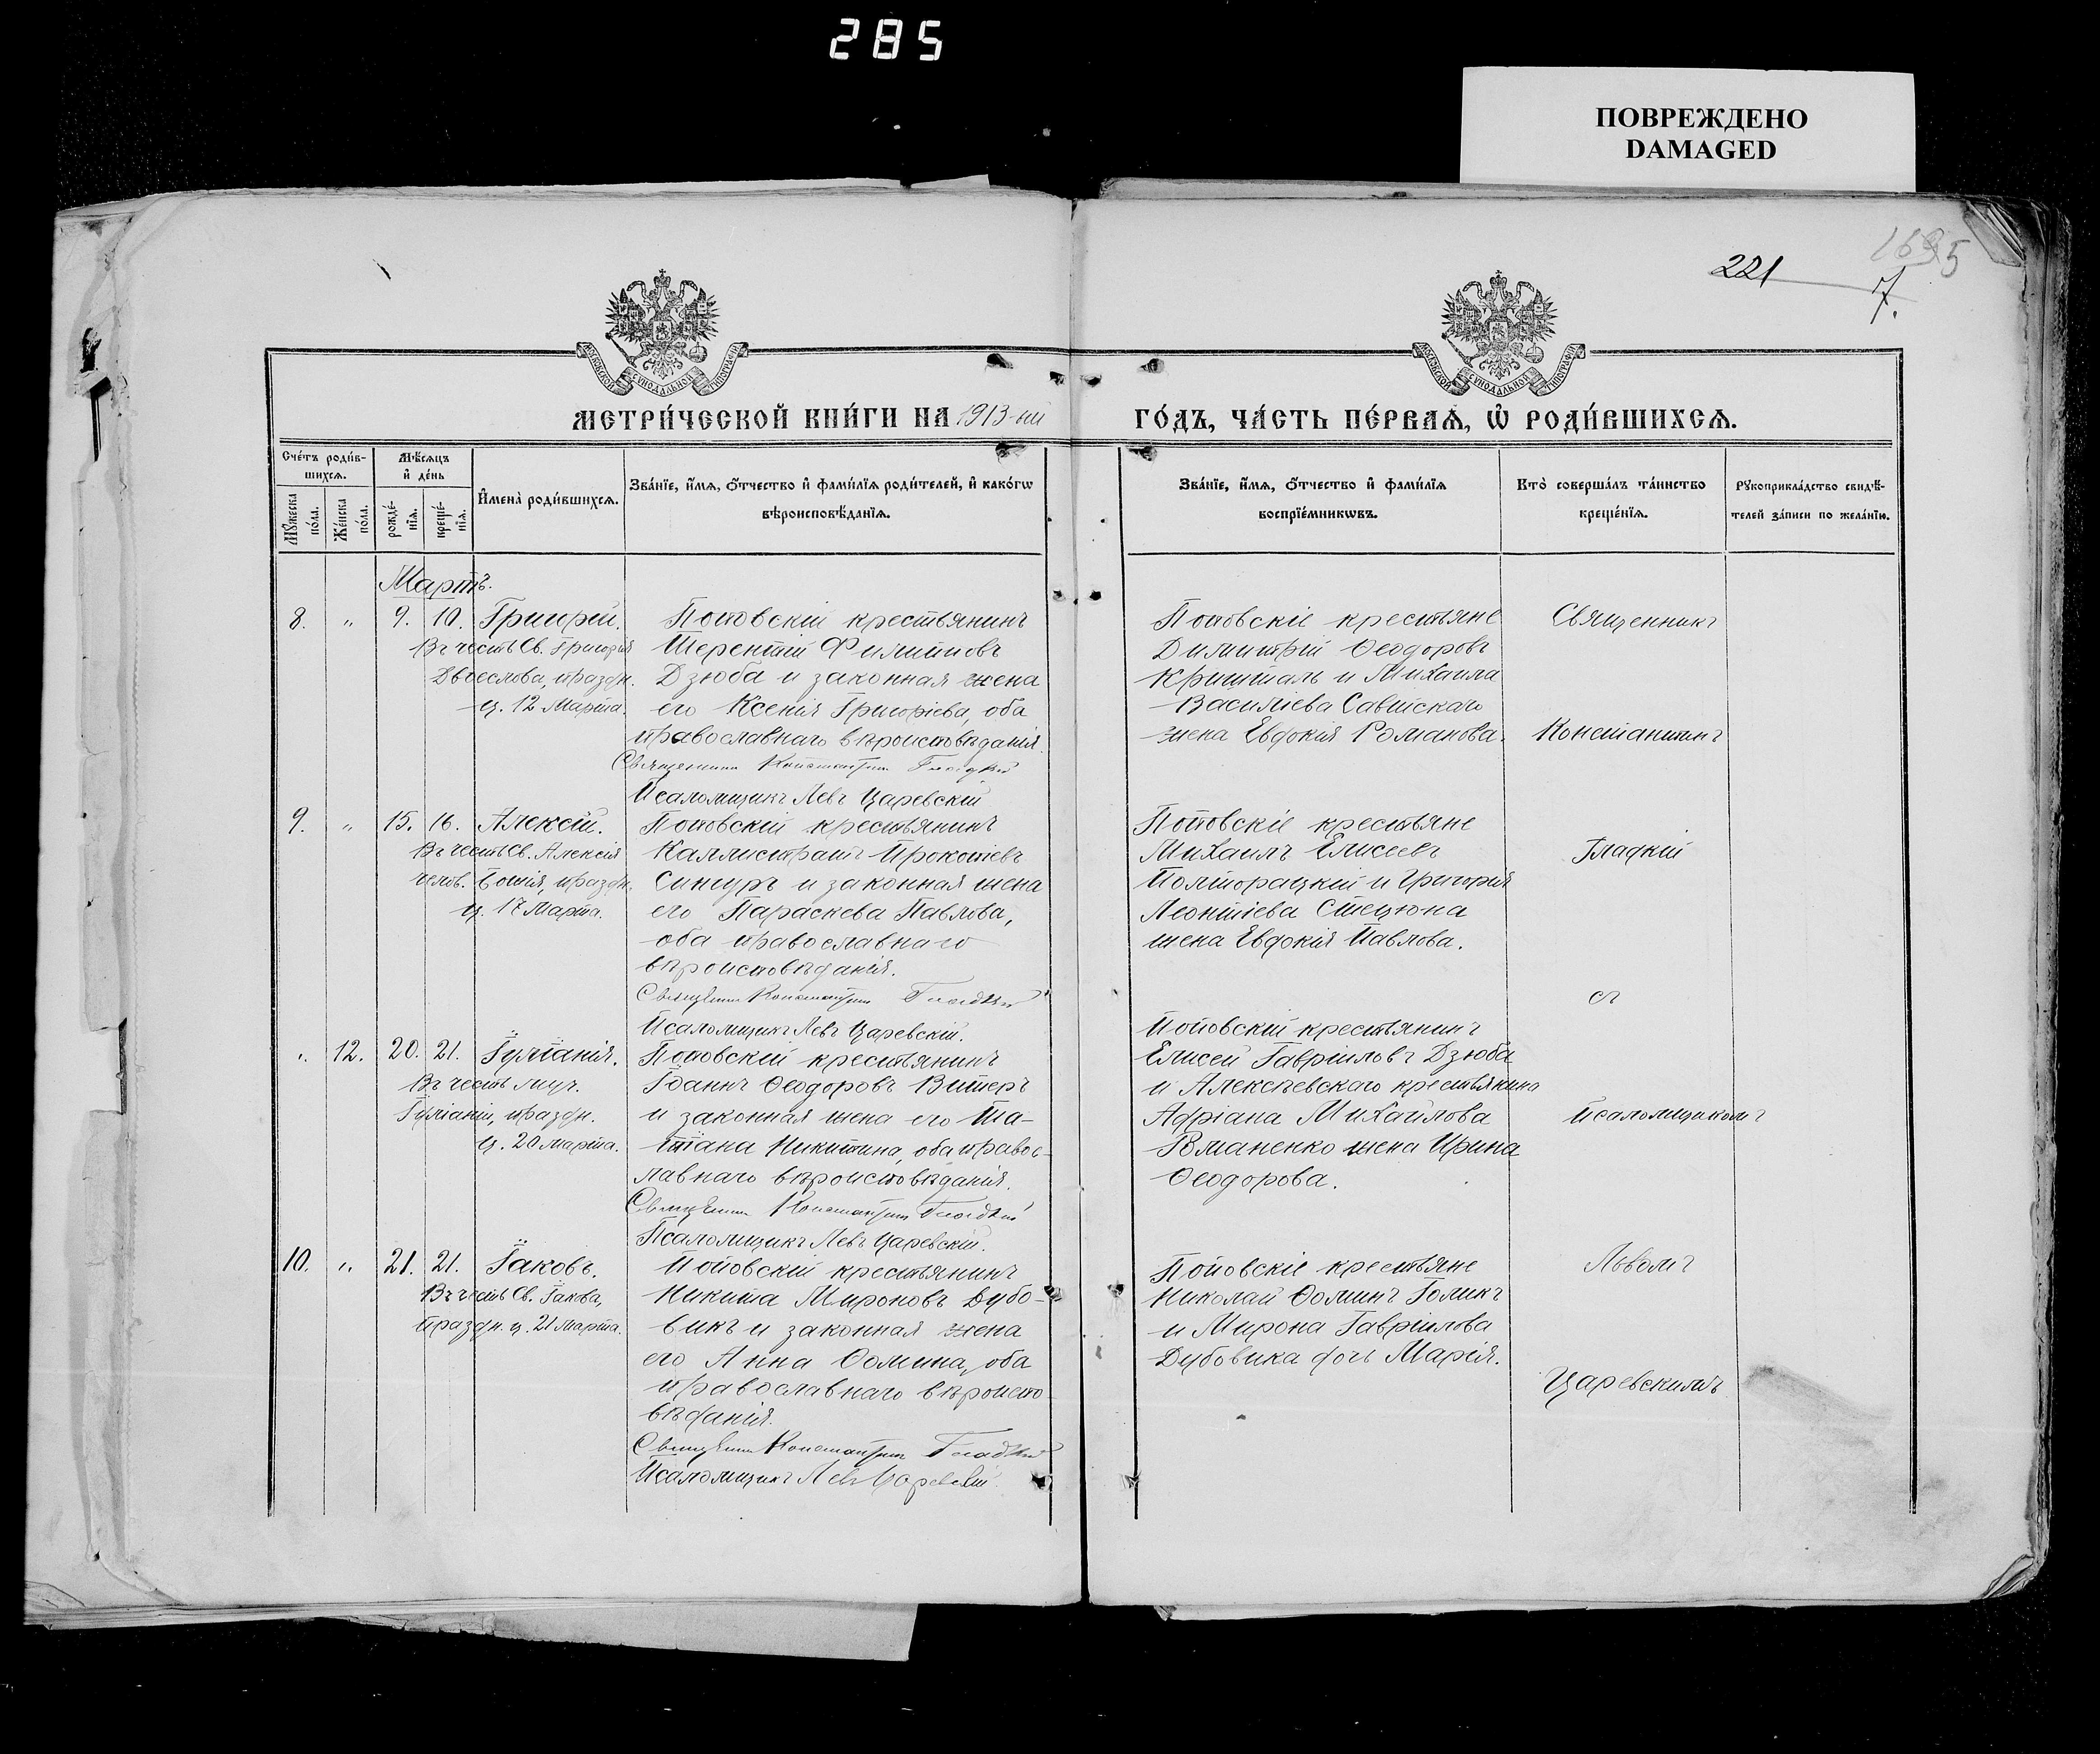 285
ПОВРЕЖДЕНО
DAMAGED
221
7.
МЕТРИ́ЧЕСКОЙ КНИ́ГИ НА 1913-ый
ГО́ДЪ, ЧА́СТЬ ПЕ́РВАѦ, Ѡ҆ РОДИ́ВШИХСѦ.
Сче́тъ роди́в-
шихсѧ.
Мꙋ́жеска по́ла.
Же́нска по́ла.
Мѣ́сѧцъ
и҆ де́нь
рожде́-
нїѧ.
креще́-
нїѧ.
И҆мена̀ роди́вшихсѧ.
Зва́нїе, и҆́мѧ, ѻ҆́тчество и҆ фами́лїѧ роди́телей, и҆ како́гѡ
вѣроисповѣ́данїѧ.
Зва́нїе, и҆́мѧ, ѻ҆́тчество и҆ фами́лїѧ
воспрїе́мникѡвъ.
Кто̀ соверша́лъ та́инство
креще́нїѧ.
Рꙋкоприкла́дство свидѣ́-
телей за́писи по жела́нїю.
Мартъ.
8. " 9. 10. Григорій.
Въ честь Св. Григорія
Двоеслова, праздн.
ц. 12 Марта.
Поповскій крестьянинъ
Терентій Филиповъ
Дзюба и законная жена
его Ксенія Григоріева, оба
православнаго вѣроисповѣданія.
Священникъ Константинъ Гладкій
Псаломщикъ Левъ Царевскій
Поповскіе крестьяне
Димитрій Ѳеодоровъ
Кришталь и Михаила
Василіева Савицкаго
жена Евдокія Романова.
Священникъ
Константинъ
9. " 15. 16. Алексій.
Въ честь Св. Алексія
челов. Божія, праздн.
ц. 17 Марта.
Поповскій крестьянинъ
Каллистратъ Прокопіевъ
Синуръ и законная жена
его Параскева Павлова,
оба православнаго
вѣроисповѣданія.
Священникъ Константинъ Гладкій
Псаломщикъ Левъ Царевскій.
Поповскіе крестьяне
Михаилъ Елисеевъ
Полторацкій и Григорія
Леонтіева Стецюна
жена Евдокія Павлова.
Гладкій
съ
" 12. 20. 21. Іуліанія.
Въ честь муч.
Іуліаніи, праздн.
ц. 20 марта.
Поповскій крестьянинъ
Іоаннъ Ѳеодоровъ Витеръ
и законная жена его Та-
тіана Никитина, оба правос-
лавнаго вѣроисповѣданія.
Священникъ Константинъ Гладкій
Псаломщикъ Левъ Царевскій.
Поповскій крестьянинъ
Елисей Гавріиловъ Дзюба
и Алексѣевскаго крестьянина
Адріана Михайлова
Романенко жена Ирина
Ѳеодорова.
псаломщикомъ
10. " 21. 21. Іаковъ.
Въ честь Св. Іакова,
праздн. ц. 21 марта.
Поповскій крестьянинъ
Никита Мироновъ Дубо-
викъ и законная жена
его Анна Ѳомина, оба
православнаго вѣроиспо-
вѣданія.
Священникъ Константинъ Гладкій
Псаломщикъ Левъ Царевскій.
Поповскіе крестьяне
Николай Ѳоминъ Голикъ
и Мирона Гавріилова
Дубовика дочь Марія.
Львомъ
Царевскимъ